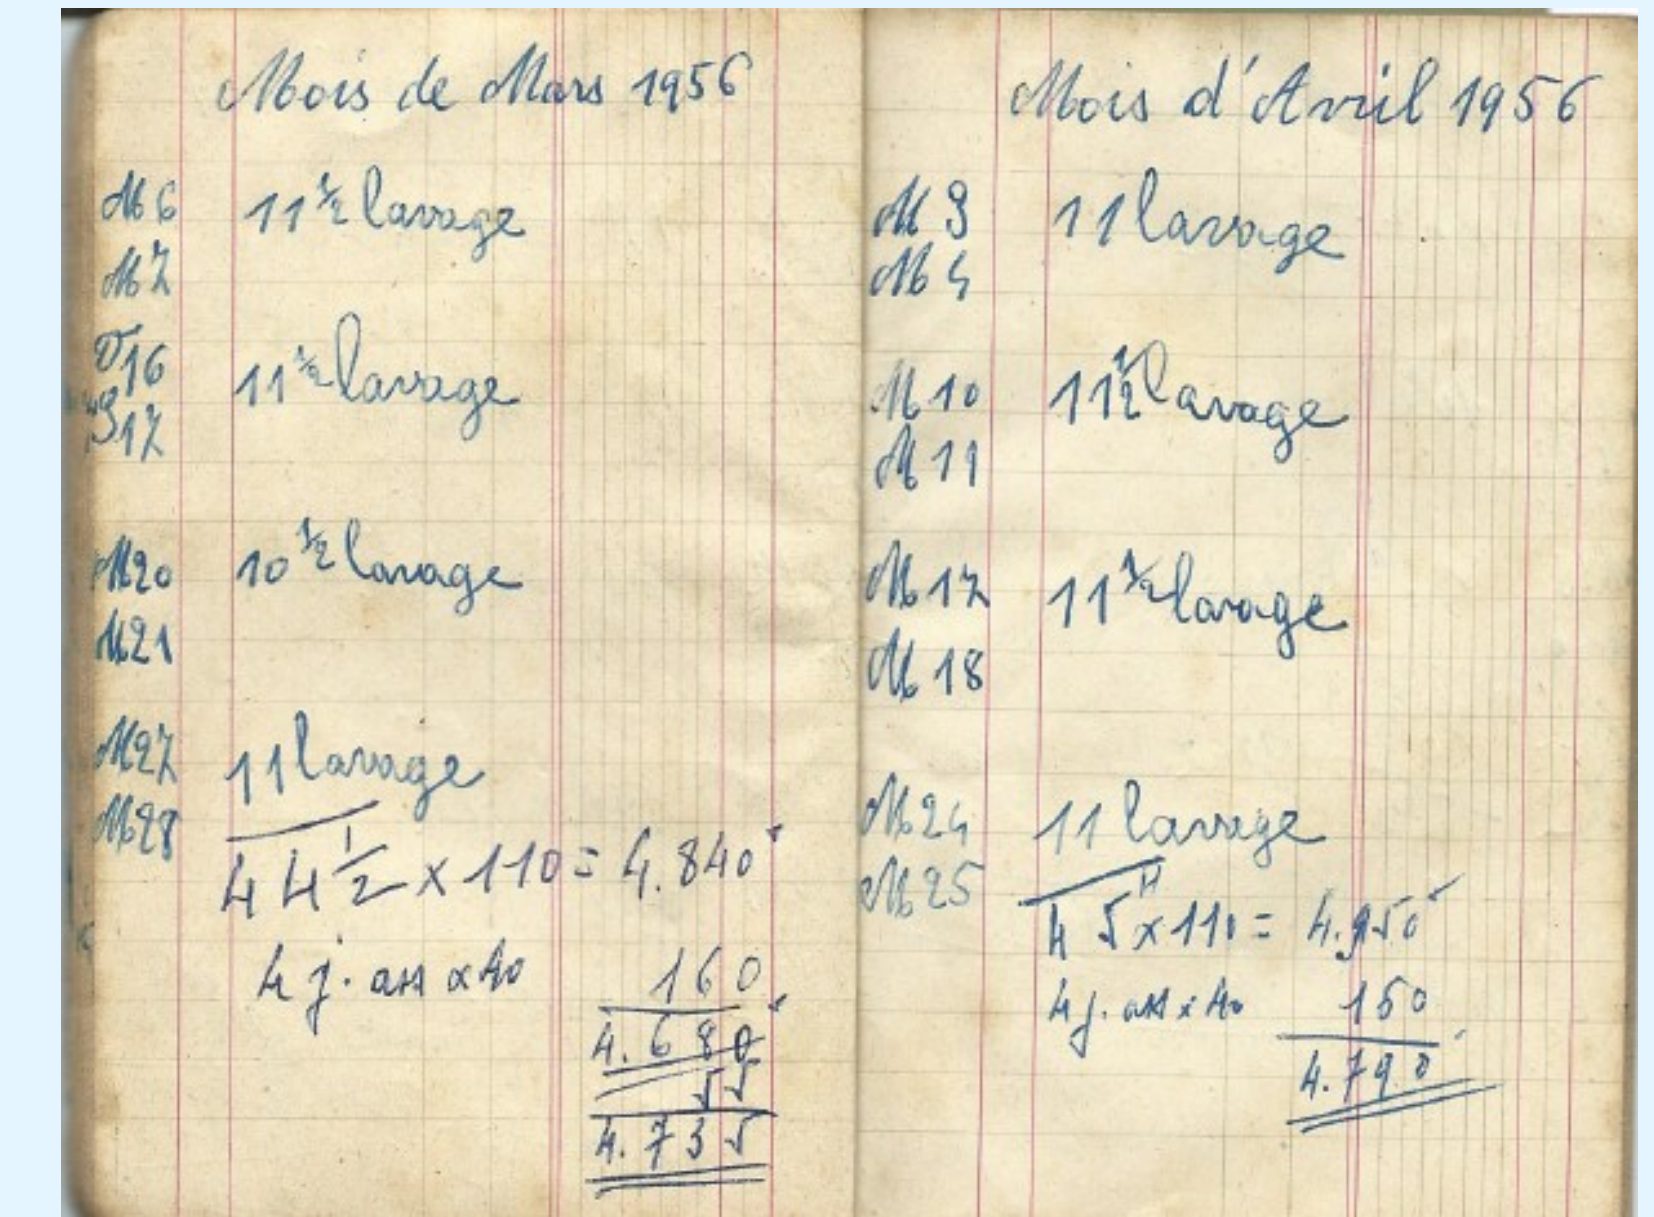 Mois de Mars 1956
M 6 11 1/2 lavage
M 7
V 16 11 1/2 lavage
S 17
M 20 10 1/2 lavage
M 21
M 27 11 lavage
M 28
44 1/2 x 110 = 4.840
4 j. ass x 40 160
4.680
55
4.735
Mois d'Avril 1956
M 3 11 lavage
M 4
M 10 11 1/2 lavage
M 11
M 17 11 1/2 lavage
M 18
M 24 11 lavage
M 25
45 H x 110 = 4.950
4 j. ass x 40 150
4.790